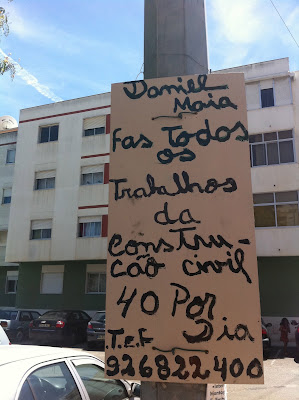 Daniel
Maia
Fas Todos
os
Trabalhos
da
Constru-
cão civil
40 Por
Dia
T.e.f.
926822400